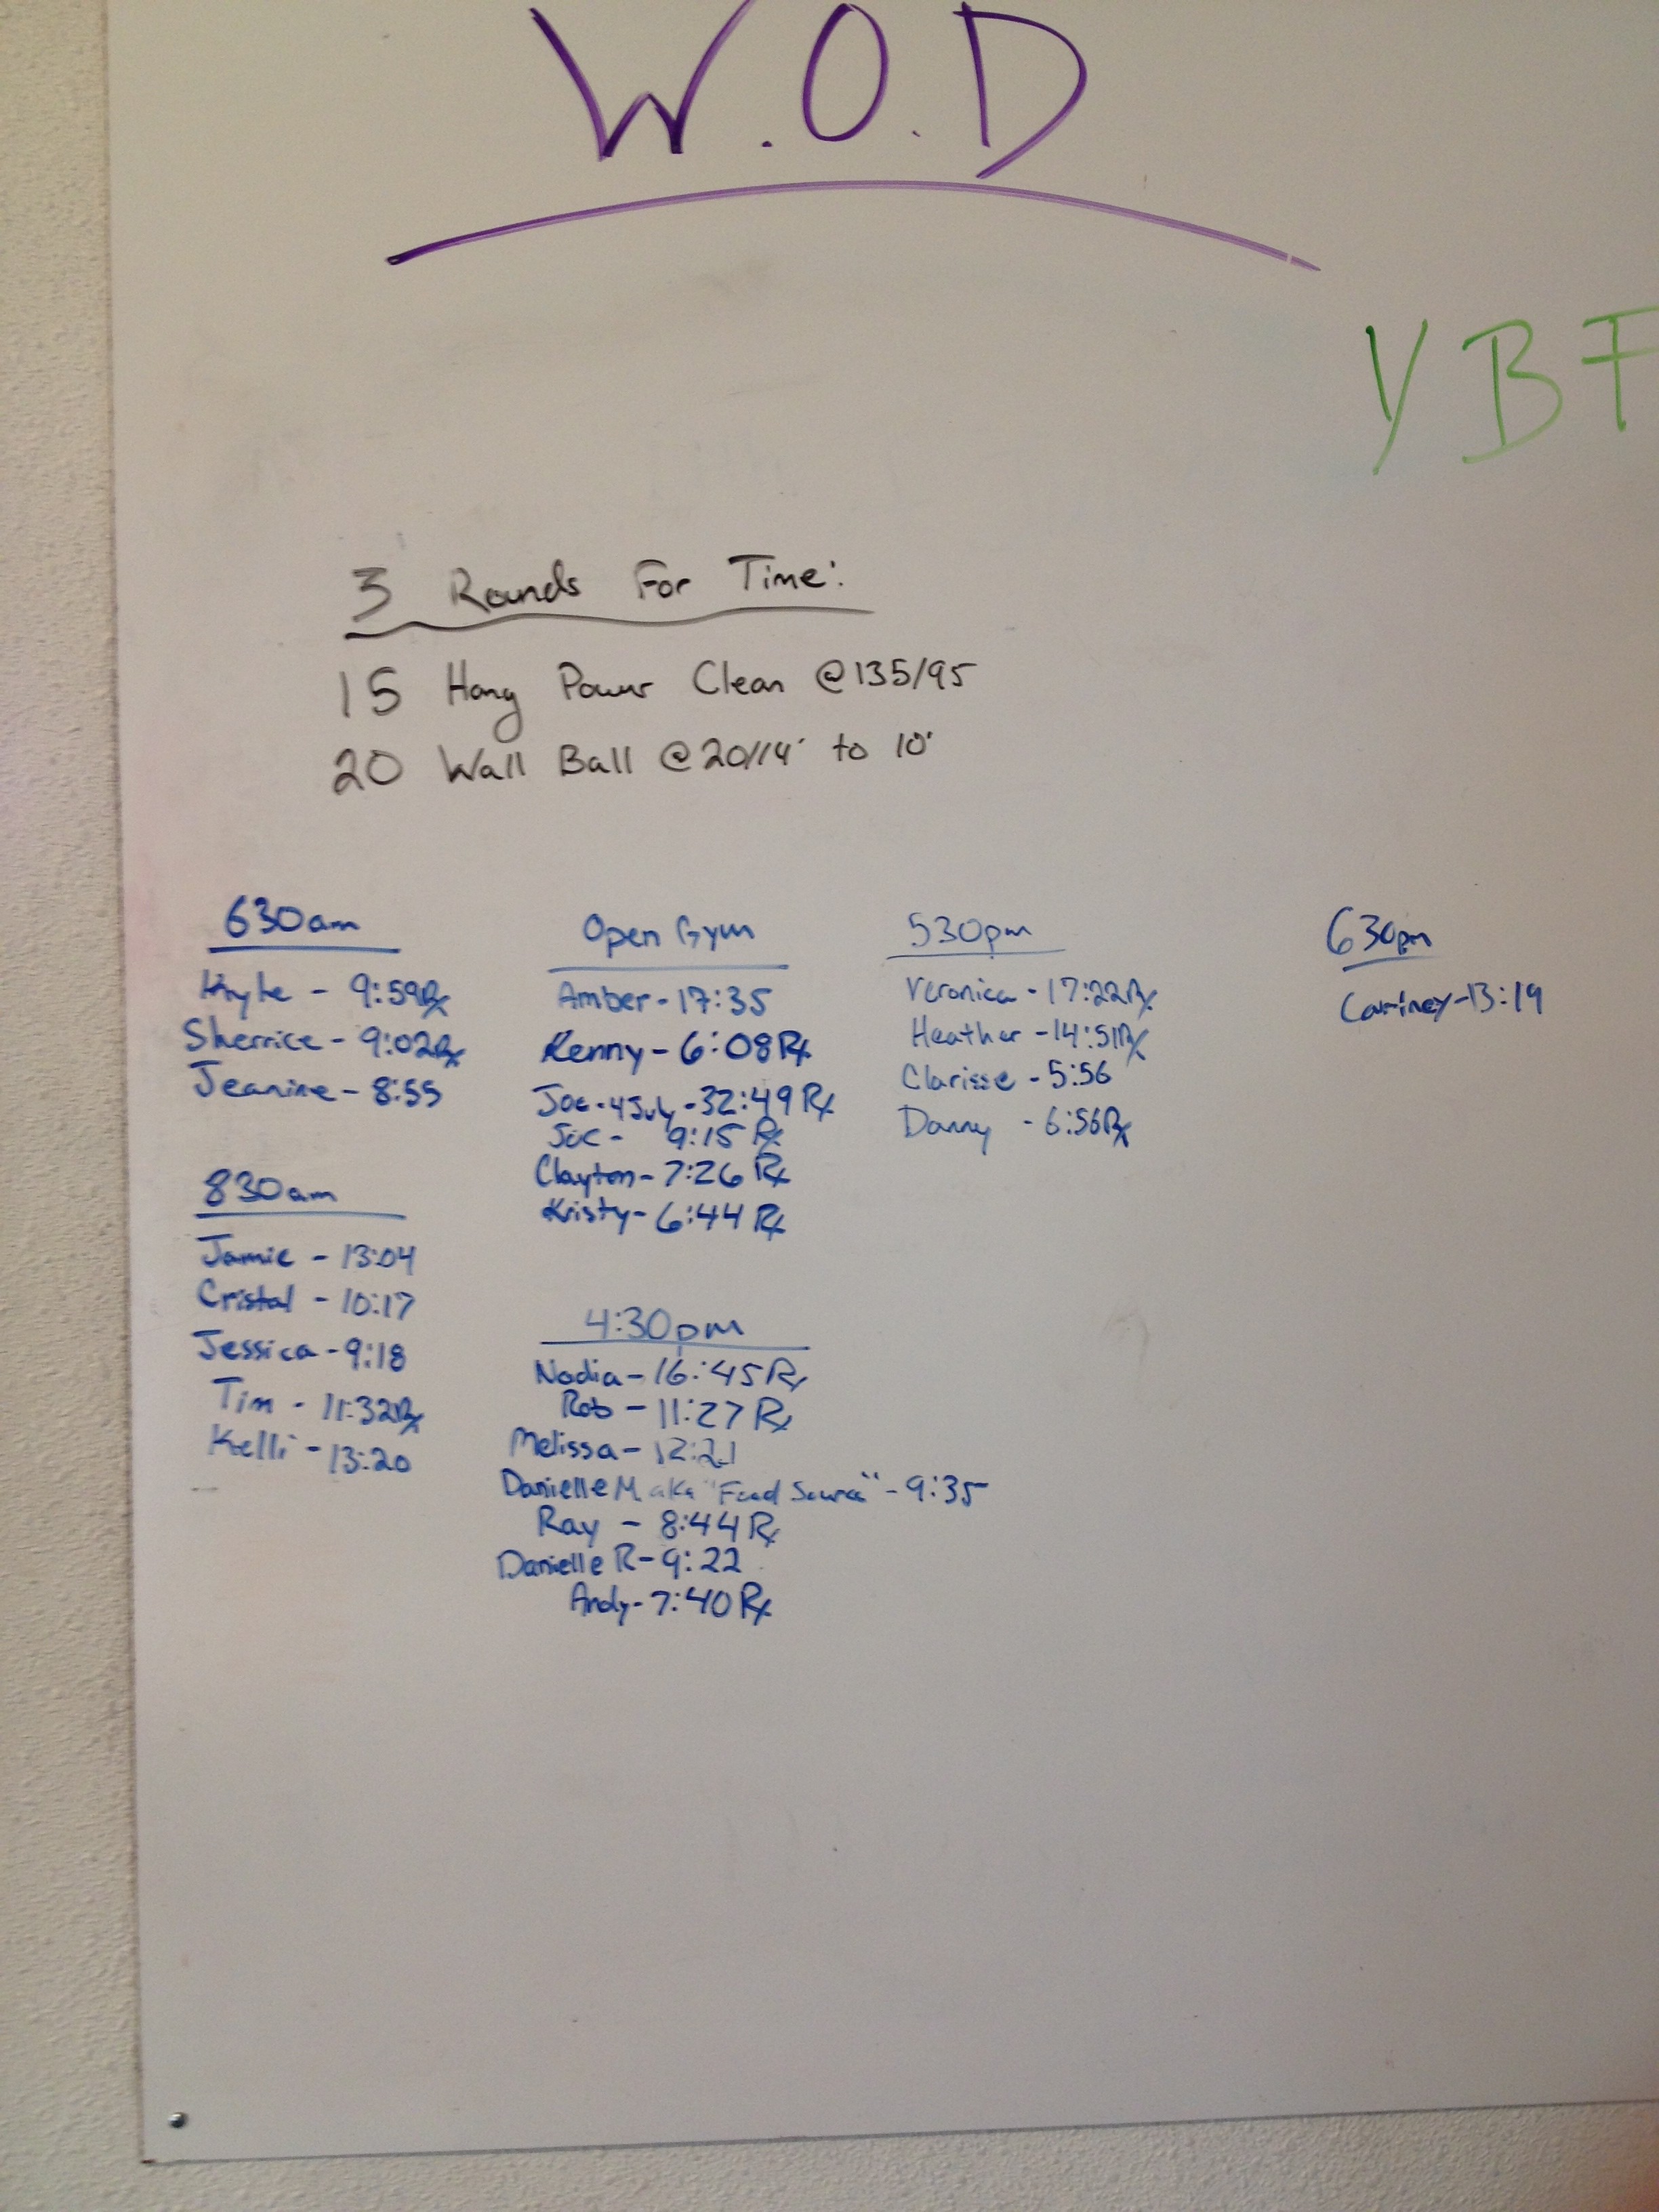 W.O.D
YBF
3 Rounds For Time:
15 Hang Power Clean @135/95
20 Wall Ball @20/14' to 10'
630am
Kyle - 9:59Rx
Sherrice - 9:02Rx
Jeanine - 8:55
830am
Jamie - 13:04
Cristal - 10:17
Jessica - 9:18
Tim - 11:32Rx
Kelli - 13:20
Open Gym
Amber - 17:35
Kenny - 6:08Rx
Joe - 4July - 32:49Rx
Joe - 9:15 Rx
Clayton - 7:26 Rx
Kristy - 6:44 Rx
4:30pm
Nadia - 16:45Rx
Rob - 11:27 Rx
Melissa - 12:21
Danielle M aka "Food Source" - 9:35
Ray - 8:44Rx
Danielle R - 9:22
Andy - 7:40Rx
530pm
Veronica - 17:22Rx
Heather - 14:51Rx
Clarisse - 5:56
Danny - 6:56Rx
630pm
13:19